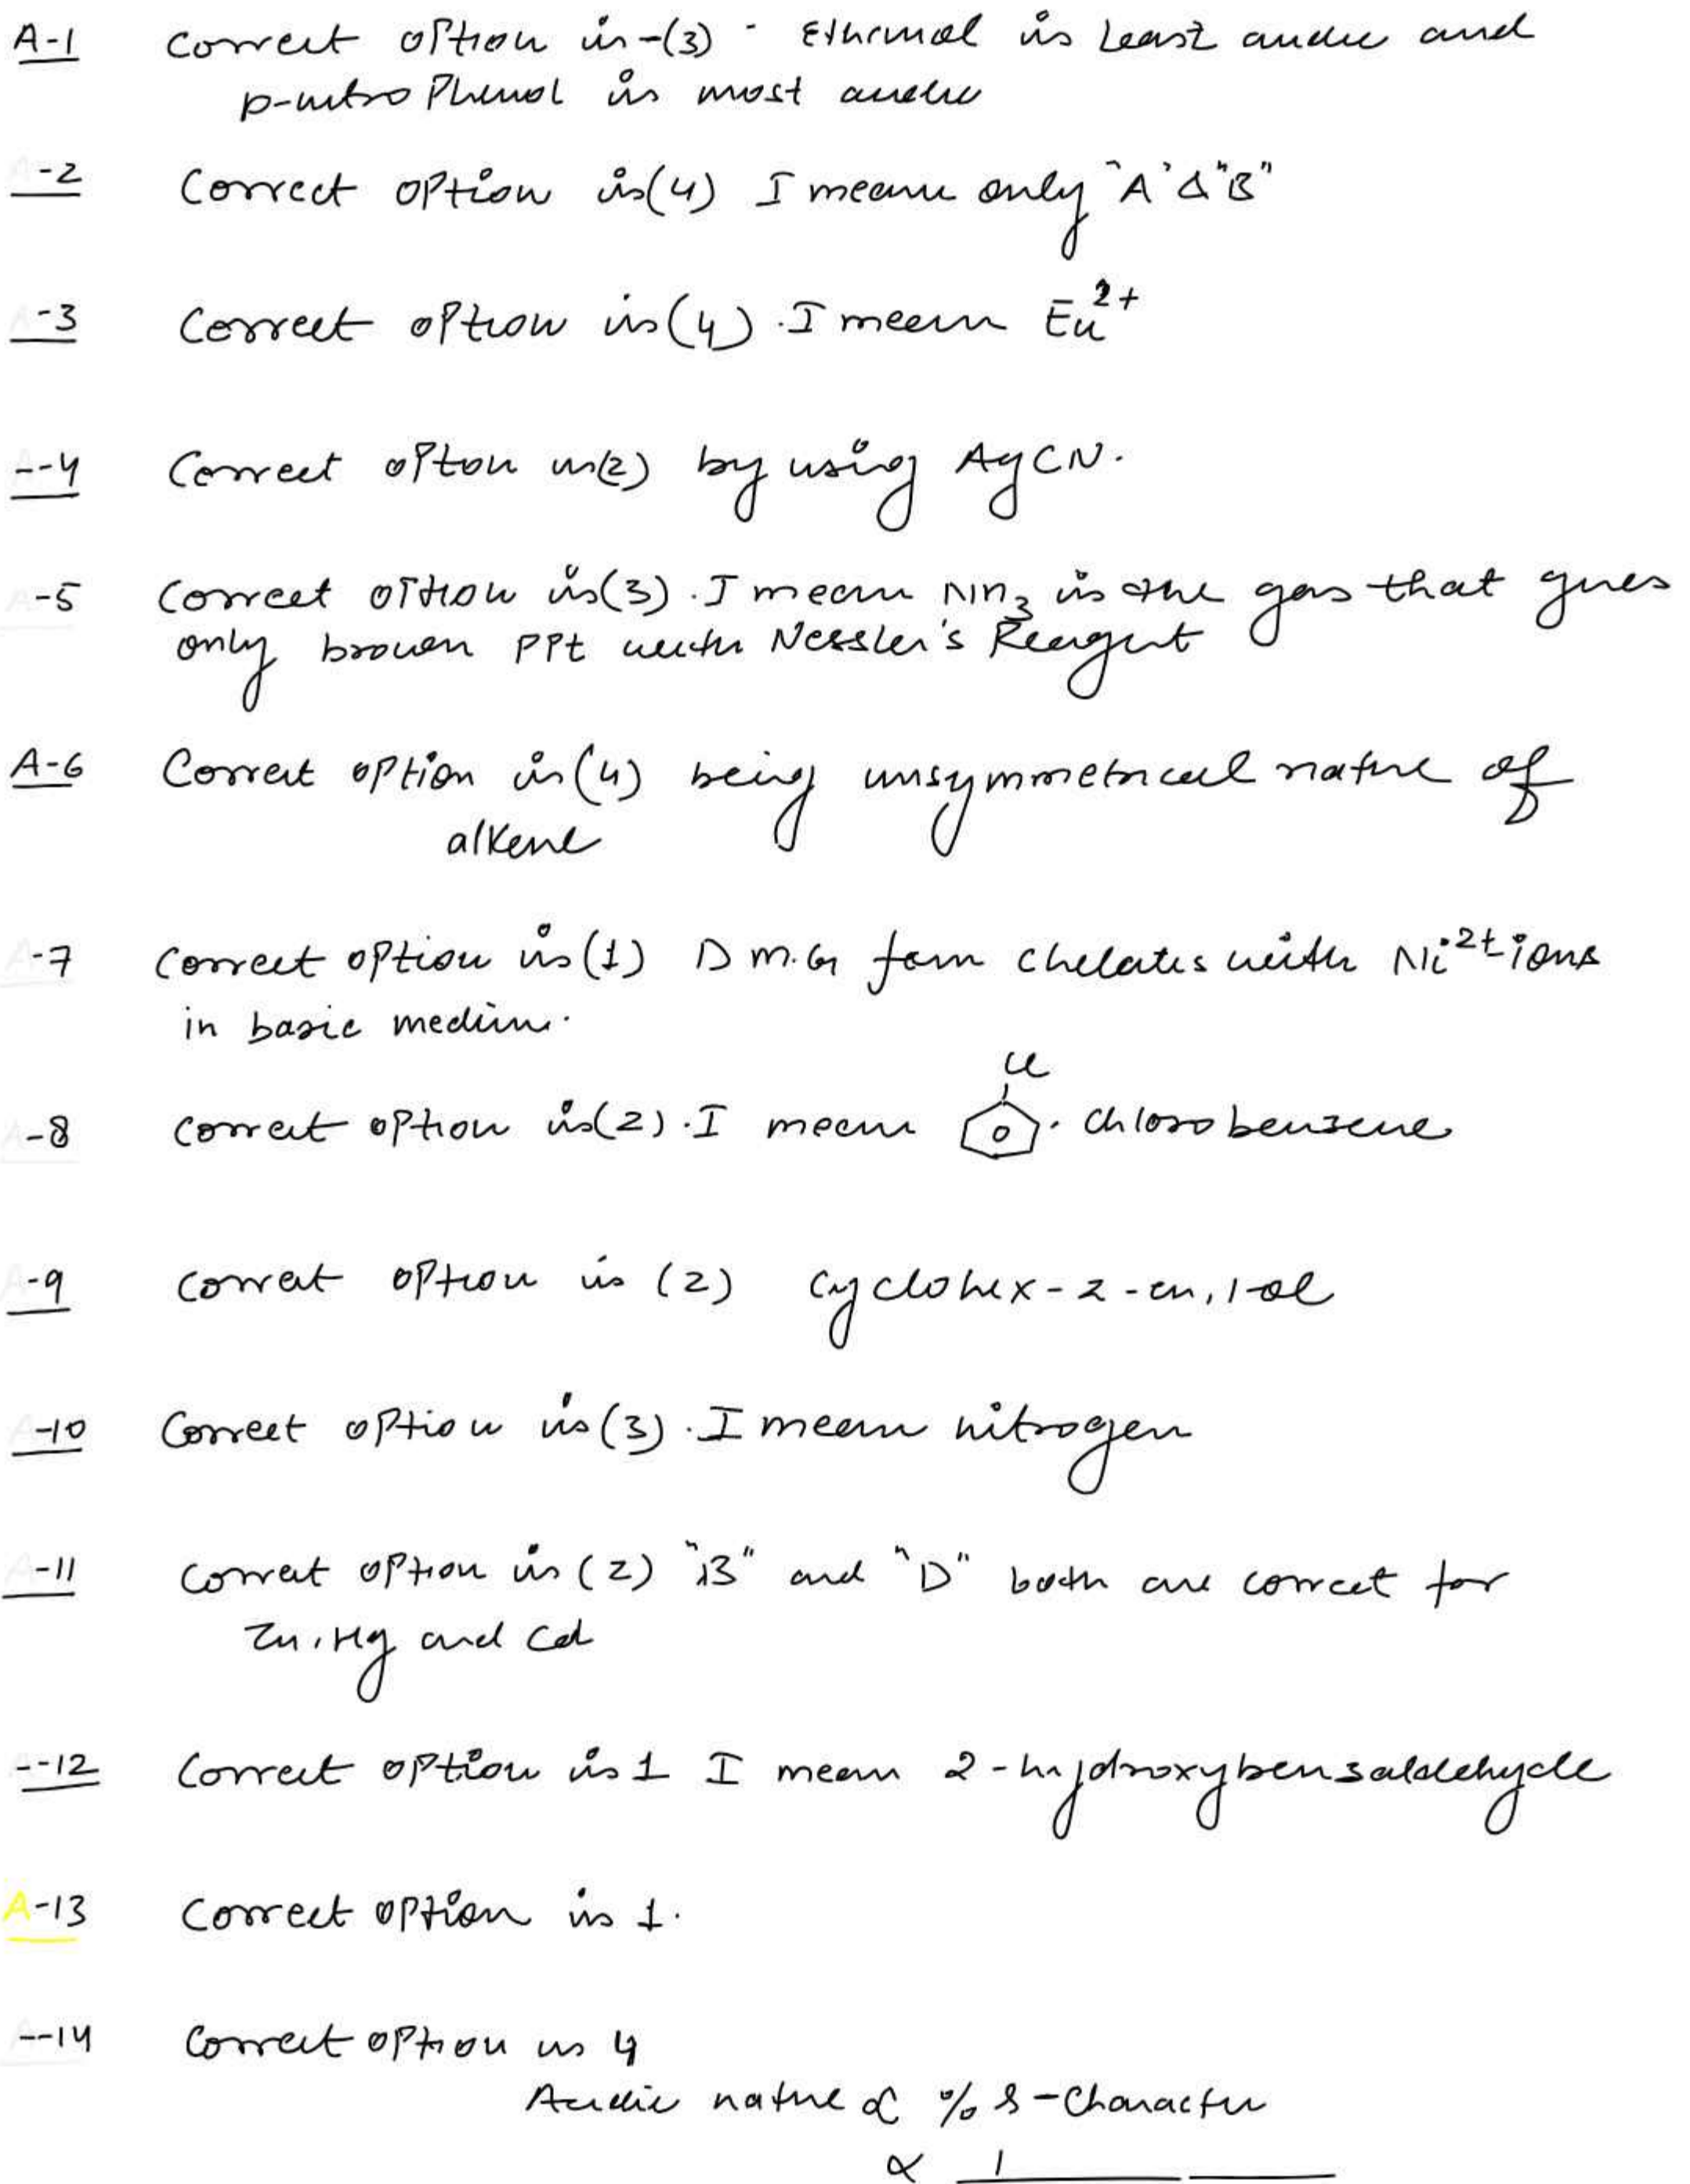 A-1 Correct option is-(3) - Ethanol is Least acidic and
p-nitro Phenol is most acidic
A-2 Correct option is(4) I mean only "A" & "B"
A-3 Correct option is(4). I mean Eu2+
A-4 Correct option is(2) by using AgCN.
A-5 Correct option is(3). I mean NH3 is the gas that gives
only brown PPt with Nessler's Reagent
A-6 Correct option is(4) being unsymmetrical nature of
alkene
A-7 Correct option is(1) D.M.G form chelates with Ni2+ ions
in basic medium.
Cl
A-8 Correct option is(2). I mean . Chlorobenzene
A-9 Correct option is (2) Cyclohex-2-en,1-ol
A-10 Correct option is(3). I mean nitrogen
A-11 Correct option is (2) "B" and "D" both are correct for
Zn, Hg and Cd
A-12 Correct option is 1 I mean 2-hydroxybenzaldehyde
A-13 Correct option is 1.
A-14 Correct option is 4
Acidic nature ∝ % s-Character
∝ 1